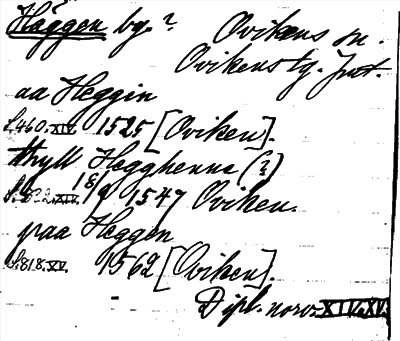 Häggen by.? Ovikens sn.
Ovikens tg. Jmt.
aa Heggin
s. 460. XIV. 1525 [Oviken].
thyll Hegghenne (?)
18/9 1547 Oviken.
paa Heggen
s. 818. XV. 1562 [Oviken].
Dipl. norv. XIV. XV.